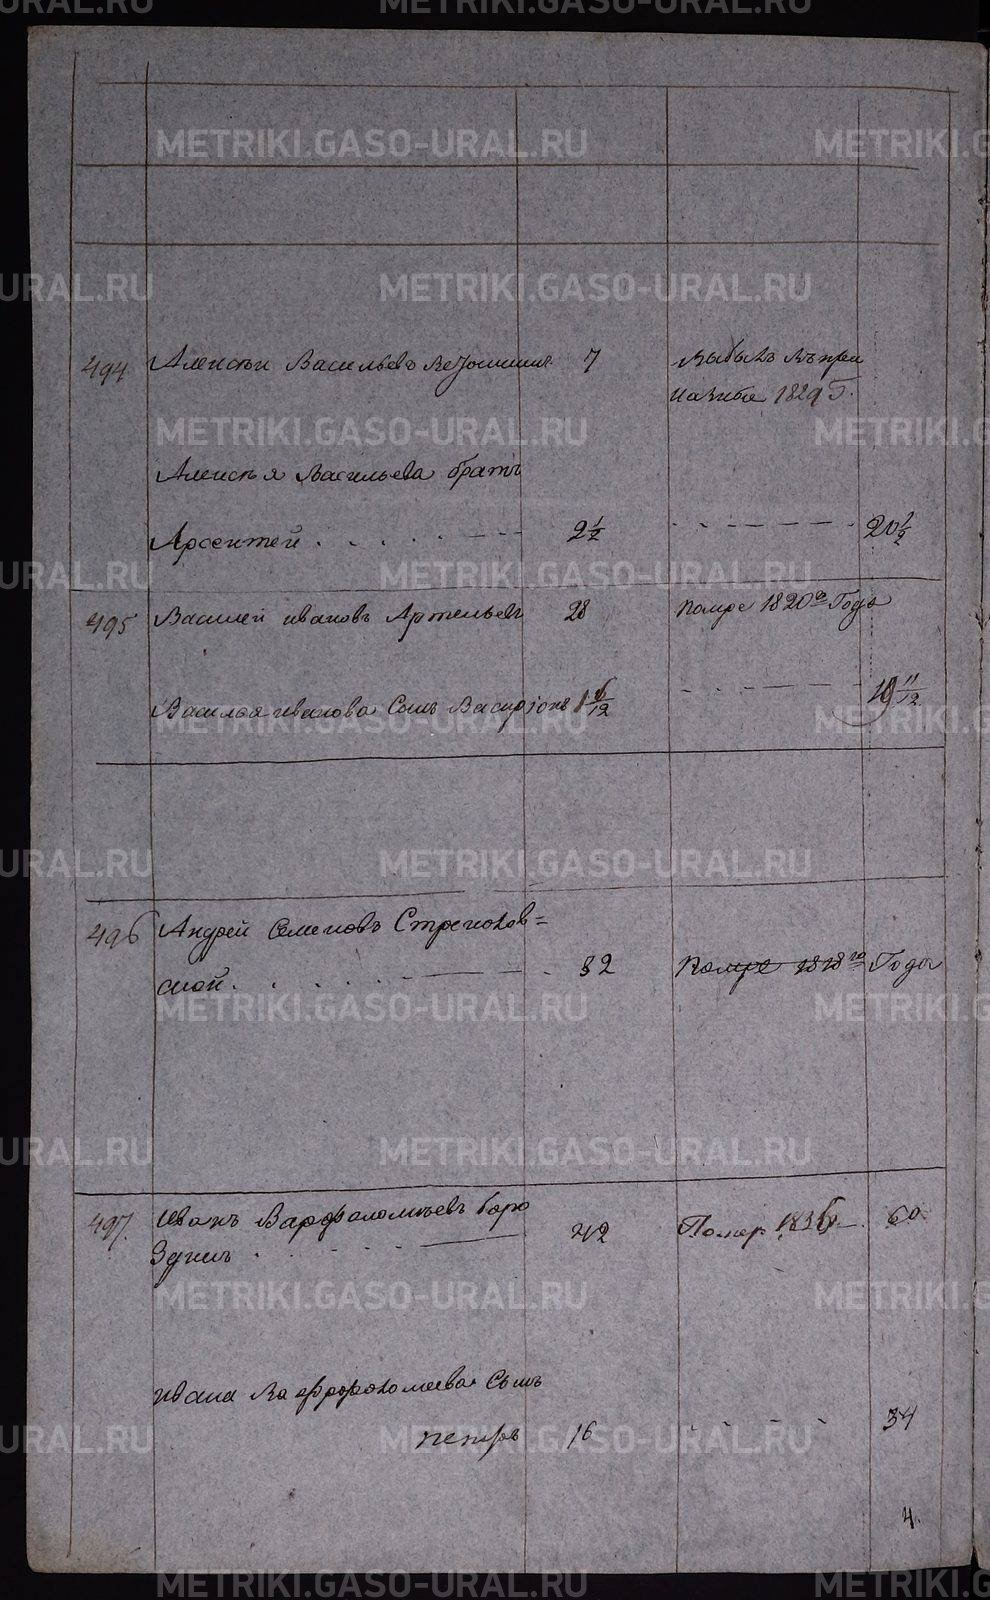 METRIKI.GASO-URAL.RU
494 Алексѣй Васильевъ 7 Выбылъ въ
1829 Г.
Алексѣя Васильева братъ
Арсентей 2 1/2 20 1/2
495 Василей ивановъ Артельевъ 28 помре 1820го Года
Василья иванова Сынъ 1 6/12 19 11/12
496 Андрей Семеновъ Стреково=
ской 32 помре 1818го Года
497. Иванъ Варфоломѣевъ боро
здинъ 42 Помер. 1836. 60
ивана Сынъ
петръ 16 34
4.